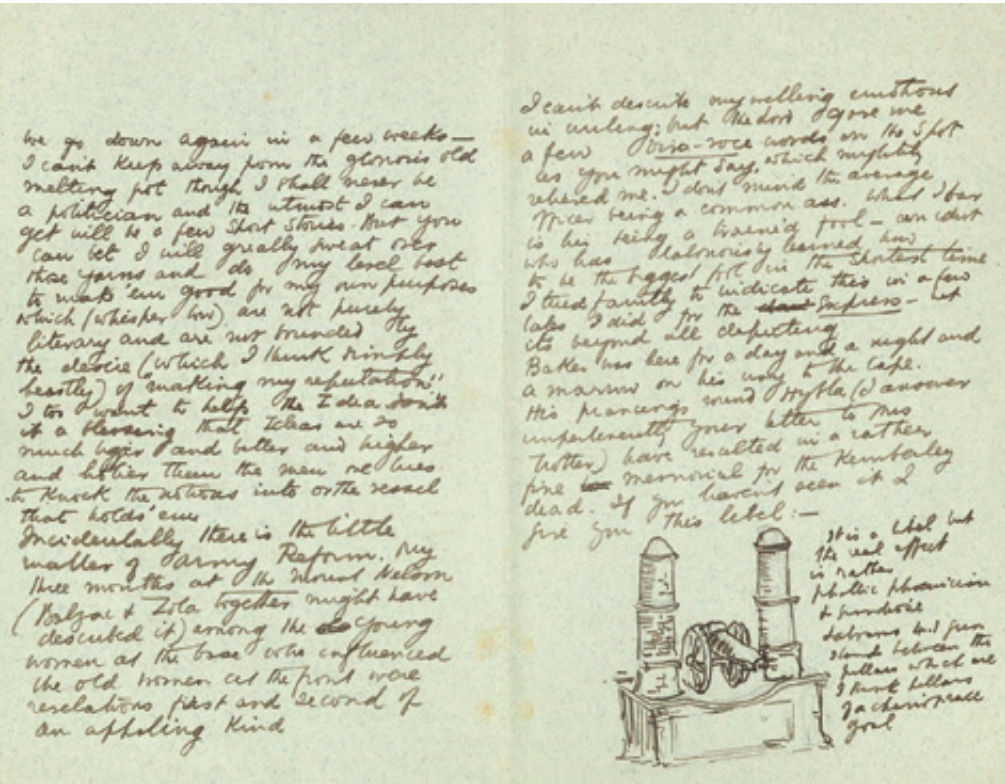 we go down again in a few weeks—
I can't keep away from the glorious old
melting pot though I shall never be
a politician and the utmost I can
get will be a few short stories. But you
can bet I will greatly sweat over
those yarns and do my level best
to make 'em good for my own purposes
which (whisper low) are not purely
literary and are not bounded by
the desire (which I think simply
beastly) of "making my reputation"
I too want to help the Idea isn't
it a blessing that Ideas are so
much bigger and better and higher
and holier than the men one tries
to knock the notions into or the vessel
that holds 'em
Incidentally there is the little
matter of Army Reform. My
three months at the Mount Nelson
(Balzac & Zola together might have
described it) among the young
women at the base who influenced
the old women at the front were
revelations first and second of
an appalling kind
I can't describe my swelling emotions
in writing; but the Lord gave me
a few viva-voce words on the spot
as you might say, which mightily
relieved me. I don't mind the average
officer being a common ass. What I bar
is his being a trained fool – an idiot
who has laboriously learned how
to be the biggest fool in the shortest time
I tried faintly to indicate this in a few
tales I did for the Express – but
its beyond all
Baker was here for a day and a night and
a on his way to the Cape.
His prancings round (I answer
impertinently your letter to Mrs
Trotter) have resulted in a rather
fine memorial for the Kimberley
dead. If you haven't seen it I
give you this libel:—
It is a libel but
the real effect
is rather
phallic phoenician
&
and gun
stands between the
pillars which are
I think pillars
of a
goal